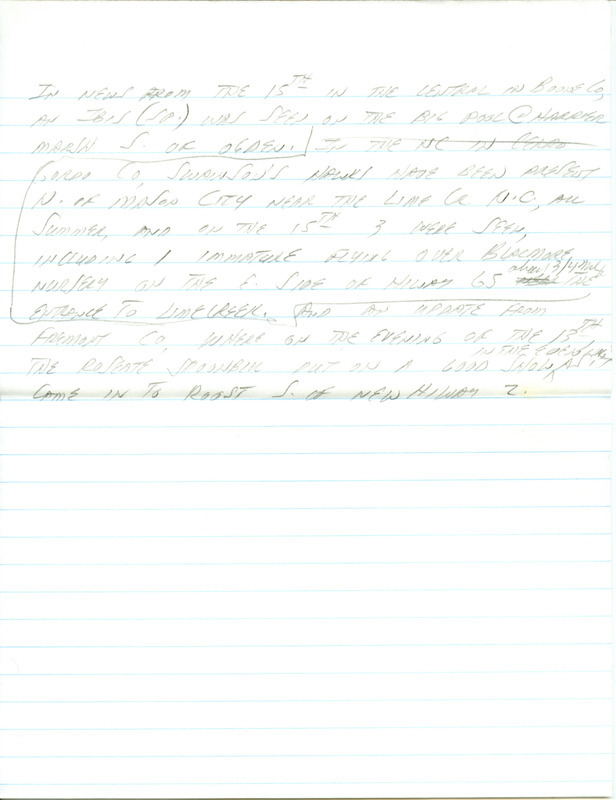 IN NEWS FROM THE 15TH IN THE CENTRAL IN BOONE CO,
AN IBIS (SP.) WAS SEEN ON THE BIG POOL @ HARRIER
MARSH S. OF OGDEN. IN THE NC IN CERRO
GORDO CO, SWAINSON'S HAWKS HAVE BEEN PRESENT
N. OF MASON CITY NEAR THE LIME CR N.C, ALL
SUMMER, AND ON THE 15TH 3 WERE SEEN,
INCLUDING 1 IMMATURE FLYING OVER BLACMORE
NURSERY ON THE E. SIDE OF HIWAY 65 about 3/4 mile THE
ENTRANCE TO LIME CREEK. AND AN UPDATE FROM
FREMONT CO, WHERE ON THE EVENING OF THE 13TH
THE ROSEATE SPOONBILL PUT ON A GOOD SHOW IN THE EVENING AS IT
CAME IN TO ROOST S. OF NEW HIWAY 2.